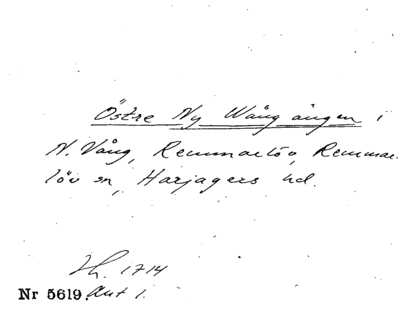 Östre Ny Wång ången i
N. Vång, Remmarlöv, Remmar-
löv sn, Harjagers hd.
Lh. 1714
Nr 5619. Akt 1.